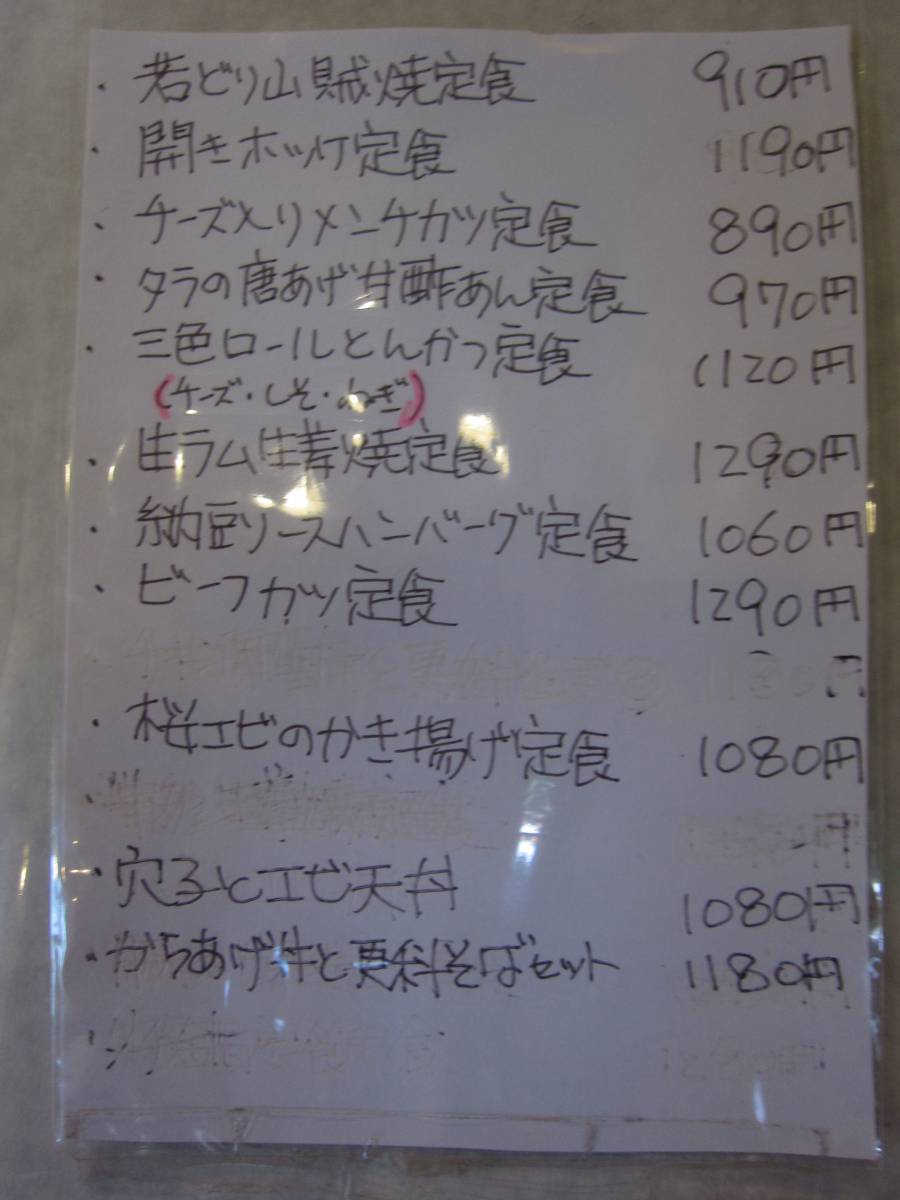 ・若どり山賊焼定食 910円
・開きホッケ定食 1190円
・チーズ入りメンチカツ定食 890円
・タラの唐あげ甘酢あん定食 970円
・三色ロールとんかつ定食 1120円
(チーズ・しそ・ねぎ)
・生ラム生姜焼定食 1290円
・納豆ソースハンバーグ定食 1060円
・ビーフカツ定食 1290円
1180円
・桜エビのかき揚げ定食 1080円
・穴子とエビ天丼 1080円
・からあげ丼と更科そばセット 1180円